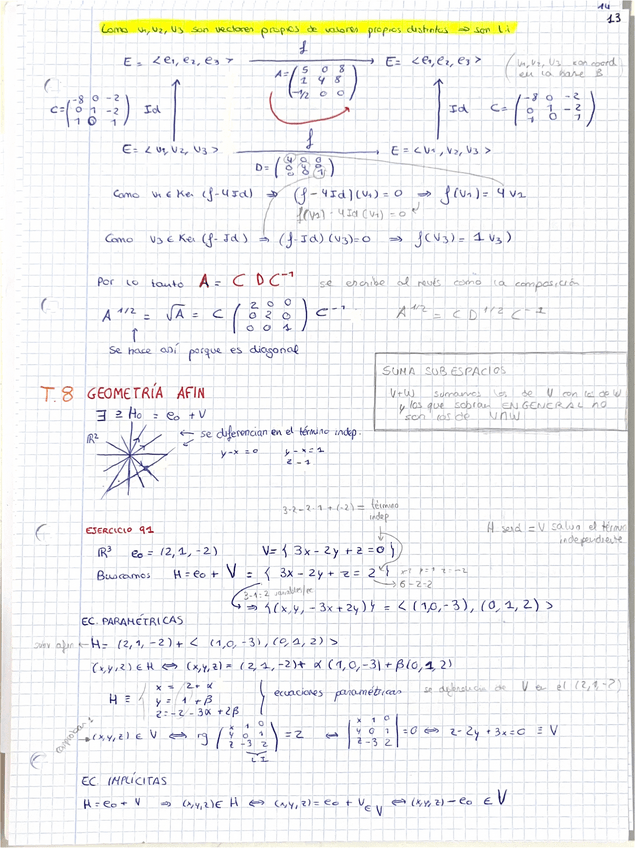 14
13
Como v1, v2, v3 son vectores propios de valores propios distintos ⇒ son l.i
E = <e1, e2, e3> f E = <e1, e2, e3>
A = (5 0 8 / 1 4 8 / -1/2 0 0)
(v1, v2, v3 con coord en la base B
C = (-8 0 -2 / 0 1 -2 / 1 0 1) Id Id C = (-8 0 -2 / 0 1 -2 / 1 0 1)
E = <v1, v2, v3> f E = <v1, v2, v3>
D = (4 0 0 / 0 4 0 / 0 0 1)
Como v1 ∈ Ker (f-4Id) ⇒ (f-4Id)(v1) = 0 ⇒ f(v1) = 4v2
f(v2) - 4Id(v1) = 0
Como v3 ∈ Ker (f-Id) ⇒ (f-Id)(v3) = 0 ⇒ f(v3) = 1 v3)
Por lo tanto A = C D C⁻¹ se escribe al revés como la composición
A^1/2 = √A = C (2 0 0 / 0 2 0 / 0 0 1) C⁻¹ A^1/2 = C D^1/2 C⁻¹
↑
Se hace así porque es diagonal
SUMA SUBESPACIOS
V+W sumamos los de V con los de W
y los que sobran EN GENERAL NO
son los de V∩W
T.8 GEOMETRÍA AFIN
∃ ≥ H0 = e0 + V
R² ← se diferencian en el término indep.
y-x=0 y-x=1
2-1
3·2-2·1+(-2) = término indep
EJERCICIO 91
H será = V salvo el térm independiente
R³ e0 = (2,1,-2) V = { 3x-2y+z=0 }
Buscamos H = e0 + V = { 3x-2y+z = 2 }
6-2-2
3-1=2 variables
⇒ {(x,y,-3x+2y)} = <(1,0,-3), (0,1,2)>
EC. PARAMÉTRICAS
H = (2,1,-2) + <(1,0,-3), (0,1,2)>
(x,y,z) ∈ H ⟺ (x,y,z) = (2,1,-2) + α(1,0,-3) + β(0,1,2)
H ≡ { x = 2+α
y = 1+β } ecuaciones paramétricas se diferencian de V en el (2,1,-2)
z = -2-3α+2β
(x,y,z) ∈ V ⟺ rg (x 1 0 / y 0 1 / z -3 2) = 2 ⟺ |x 1 0 / y 0 1 / z -3 2| = 0 ⟺ z-2y+3x=0 ≡ V
EC. IMPLÍCITAS
H = e0 + V ⇒ (x,y,z) ∈ H ⟺ (x,y,z) = e0 + v ∈ V ⟺ (x,y,z) - e0 ∈ V